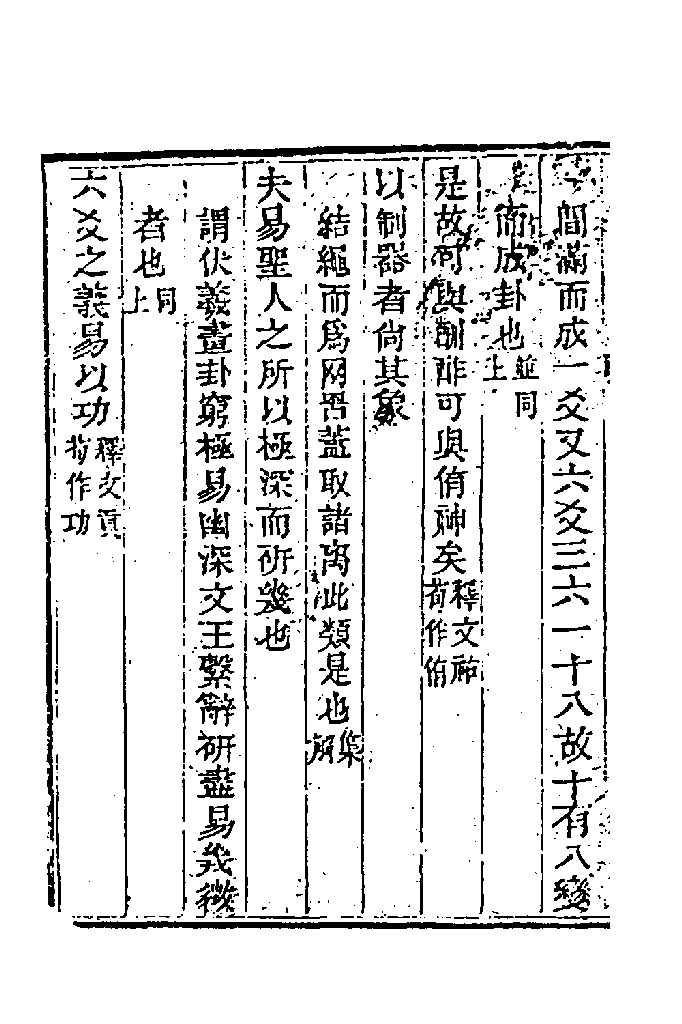 間滿而成一爻又六爻三六一十八故十有八變
而成卦也並同上
是故可與酬酢可與侑神矣釋文祐荀作侑
以制器者尚其象
結繩而爲网罟蓋取諸离此類是也集解
夫易聖人之所以極深而研幾也
謂伏羲畫卦窮極易幽深文王繫辭研盡易幾微
者也同上
六爻之義易以功釋文貢荀作功